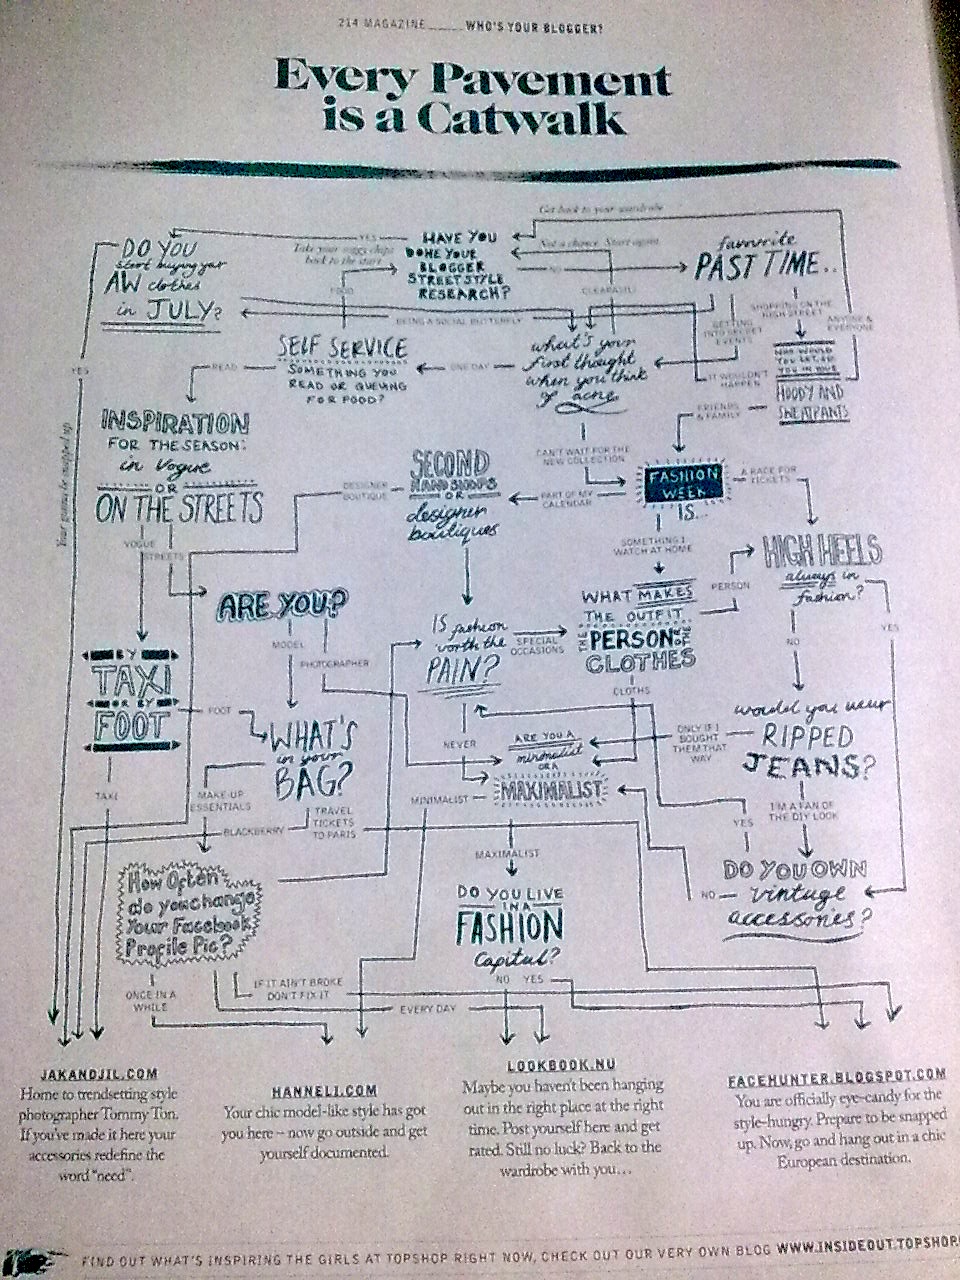 214 MAGAZINE____ WHO'S YOUR BLOGGER?
Every Pavement
is a Catwalk
Get back to your wardrobe
YES
HAVE YOU
DONE YOUR
BLOGGER
STREETSTYLE
RESEARCH?
Take your soggy chips
back to the start
Not a chance. Start again
NO
favourite
PAST TIME..
DO YOU
start buying your
AW clothes
in JULY?
FOOD
CLEARASIL!
BEING A SOCIAL BUTTERFLY
GETTING
INTO SECRET
EVENTS
SHOPPING ON THE
HIGH STREET
ANYONE &
EVERYONE
WHO WOULD
YOU LET SEE
YOU IN YOUR
HOODY AND
SWEATPANTS
IT WOULDN'T
HAPPEN
FRIENDS
& FAMILY
SELF SERVICE
SOMETHING YOU
READ OR QUEUING
FOR FOOD?
ONE DAY
what's your
first thought
when you think
of acne
READ
YES
Your gonna be snapped up
INSPIRATION
FOR THE SEASON:
in Vogue
OR
ON THE STREETS
CAN'T WAIT FOR THE
NEW COLLECTION
SECOND
HAND SHOPS
OR
designer
boutiques
DESIGNER
BOUTIQUE
PART OF MY
CALENDAR
FASHION
WEEK
IS...
A RACE FOR
TICKETS
VOGUE
STREETS
SOMETHING I
WATCH AT HOME
HIGH HEELS
always in
fashion?
ARE YOU?
MODEL
PHOTOGRAPHER
IS fashion
worth the
PAIN?
SPECIAL
OCCASIONS
WHAT MAKES
THE OUTFIT
THE PERSON OR THE
CLOTHES
PERSON
NO
YES
CLOTHS
BY
TAXI
OR BY
FOOT
FOOT
TAXI
WHAT'S
in your
BAG?
NEVER
ARE YOU A
minimalist
OR A
MAXIMALIST
ONLY IF I
BOUGHT
THEM THAT
WAY
would you wear
RIPPED
JEANS?
MAKE-UP
ESSENTIALS
BLACKBERRY
TRAVEL
TICKETS
TO PARIS
MINIMALIST
MAXIMALIST
YES
I'M A FAN OF
THE DIY LOOK
How Often
do you change
Your Facebook
Profile Pic?
DO YOU LIVE
IN A
FASHION
Capital?
NO
DO YOU OWN
vintage
accessories?
ONCE IN A
WHILE
IF IT AIN'T BROKE
DON'T FIX IT
EVERY DAY
NO YES
JAKANDJIL.COM
Home to trendsetting style
photographer Tommy Ton.
If you've made it here your
accessories redefine the
word "need".
HANNELI.COM
Your chic model-like style has got
you here – now go outside and get
yourself documented.
LOOKBOOK.NU
Maybe you haven't been hanging
out in the right place at the right
time. Post yourself here and get
rated. Still no luck? Back to the
wardrobe with you...
FACEHUNTER.BLOGSPOT.COM
You are officially eye-candy for the
style-hungry. Prepare to be snapped
up. Now, go and hang out in a chic
European destination.
FIND OUT WHAT'S INSPIRING THE GIRLS AT TOPSHOP RIGHT NOW, CHECK OUT OUR VERY OWN BLOG WWW.INSIDEOUT.TOPSHOP.